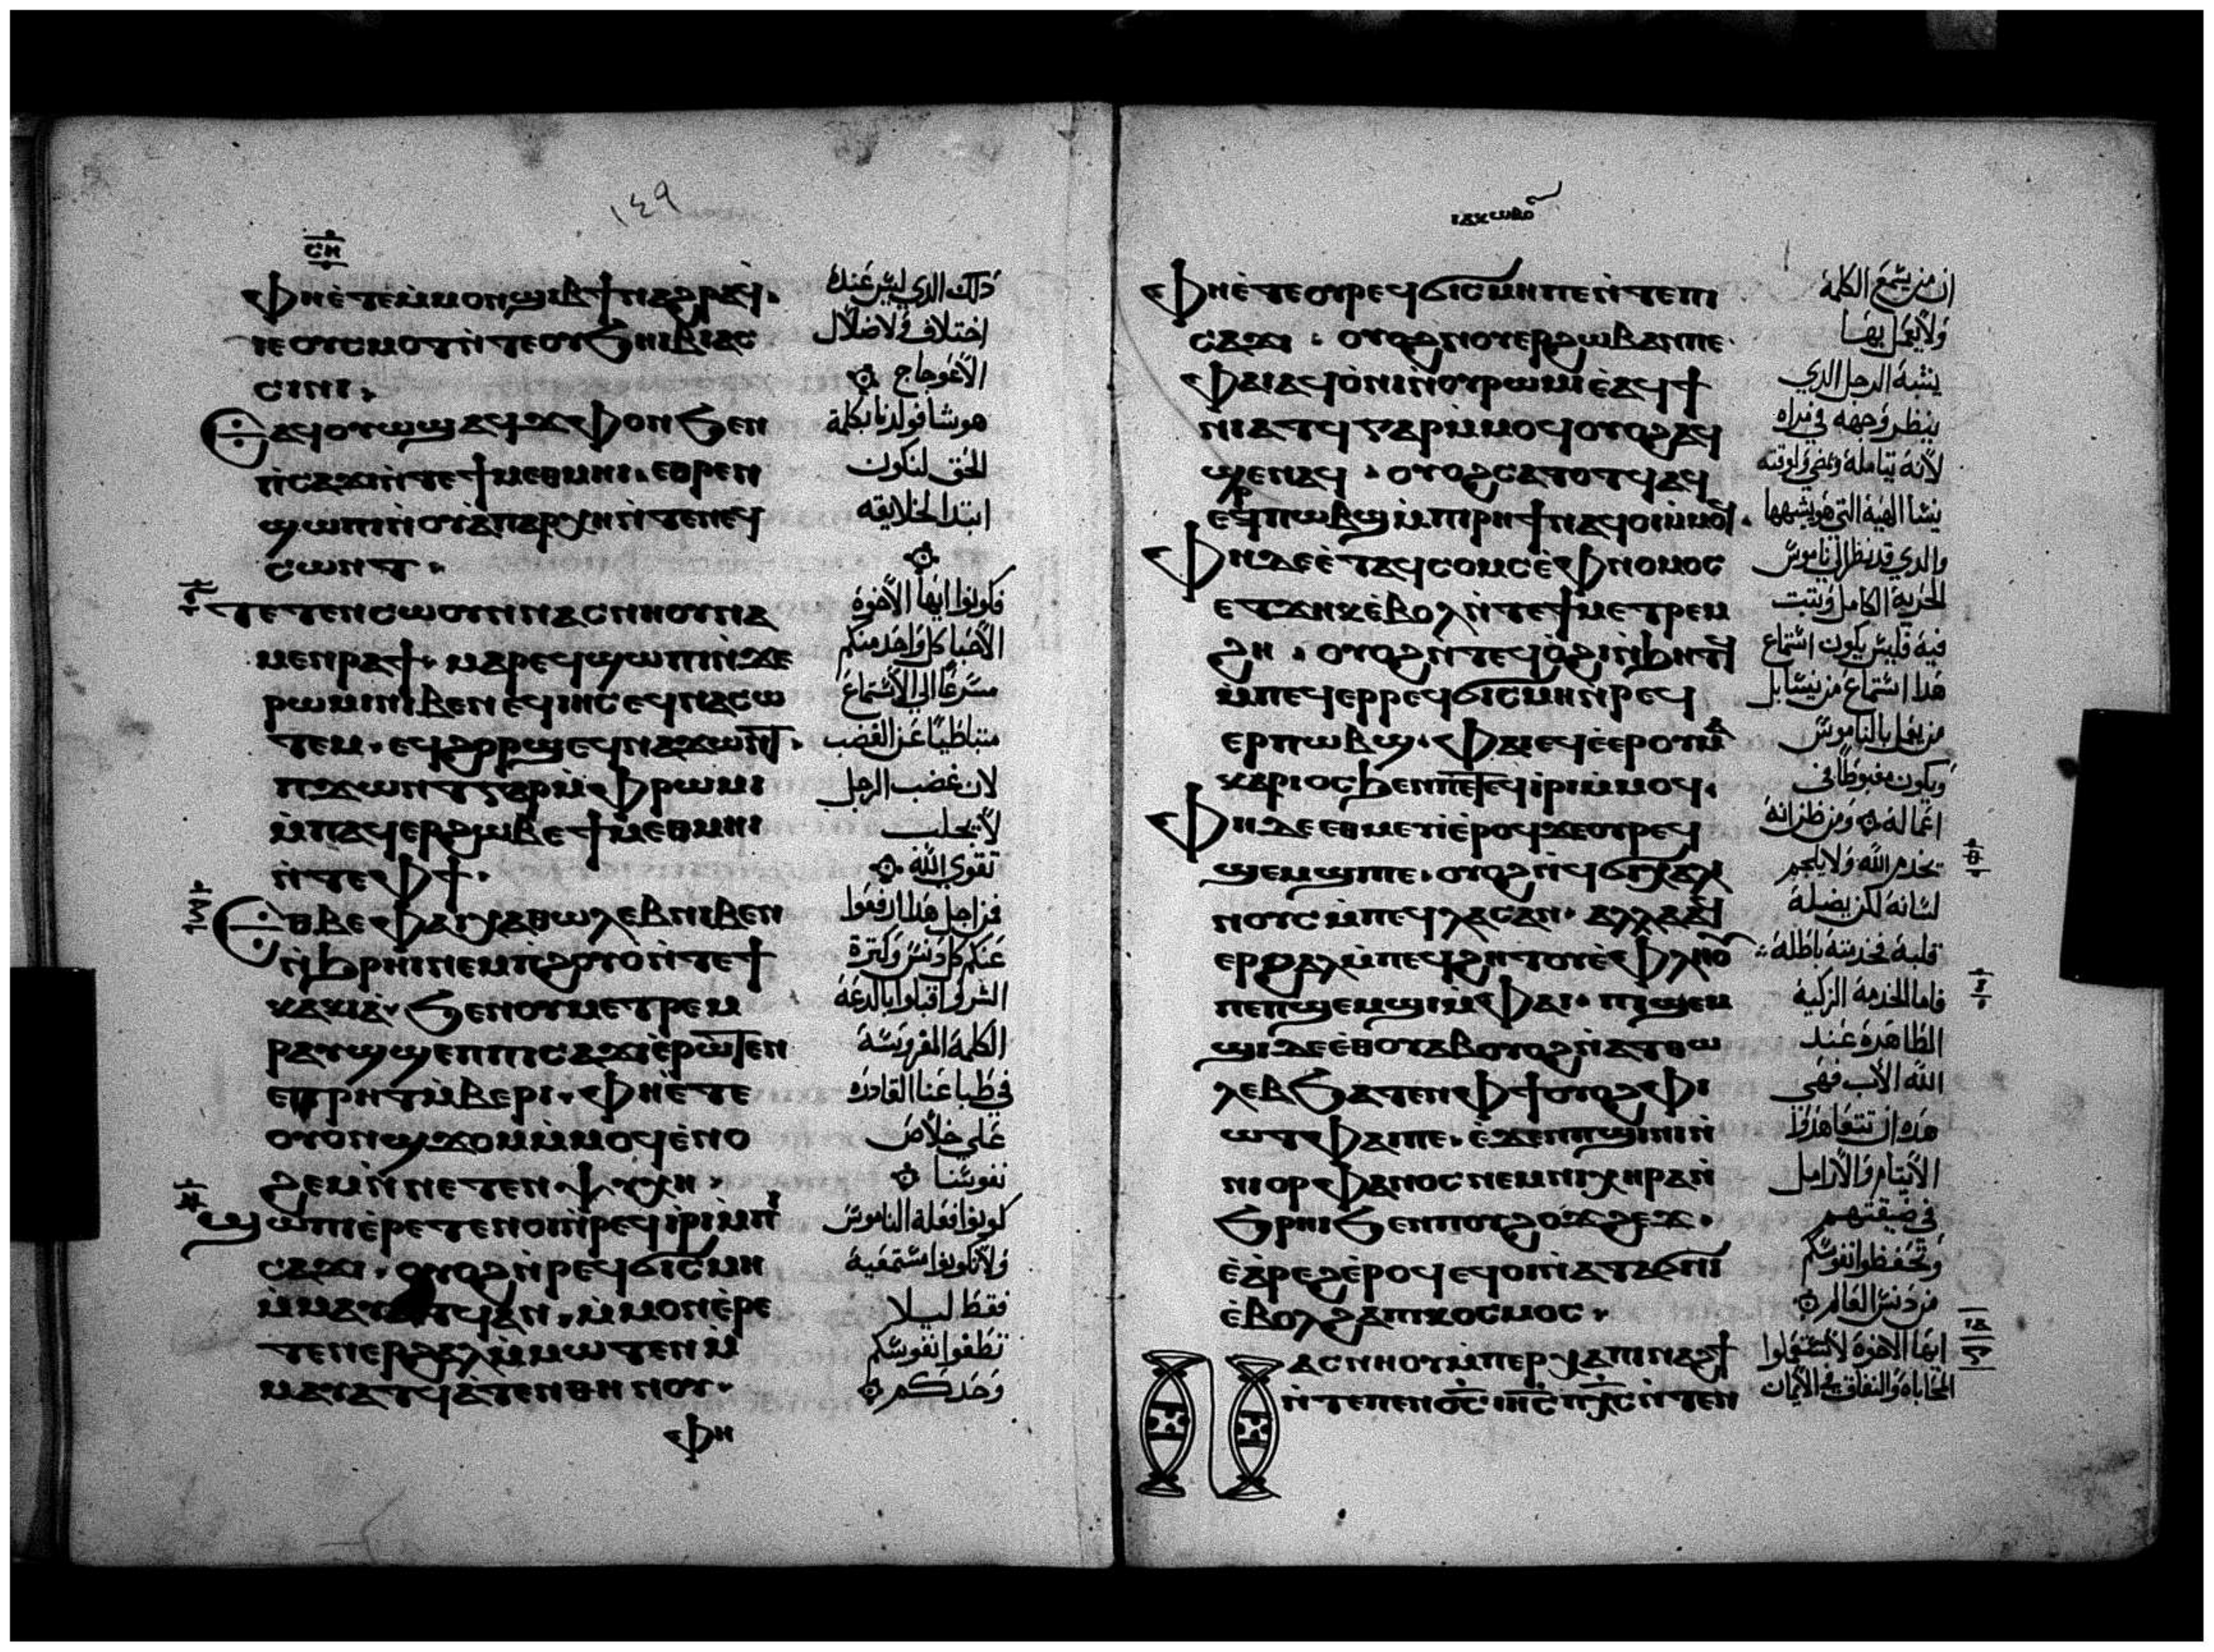 ١٤٩
ⲥⲏ
Ⲫⲏⲉ̀ⲧⲉⲙ̀ⲙⲟⲛϣⲓⲃϯⲛⲁϩⲣⲁϥ.
ⲓⲉⲟⲩⲥⲙⲟⲧⲛ̀ⲧⲉⲟⲩϧⲏⲓⲃⲓⲁⲥ
ⲥⲓⲛⲓ.
Ⲉⲁϥⲟⲩⲱϣⲁϥϫⲫⲟⲛϧⲉⲛ
ⲡ̀ⲥⲁϫⲓⲛ̀ⲧⲉϯⲙⲉⲑⲙⲏⲓ. ⲉⲑⲣⲉⲛ
ϣⲱⲡⲓⲛ̀ⲟⲩⲁ̀ⲡⲁⲣⲭⲏⲛ̀ⲧⲉⲛⲉϥ
ⲥⲱⲛⲧ.
ⲧⲉⲧⲉⲛⲥⲱⲟⲩⲛⲛⲁⲥⲛⲏⲟⲩⲛⲁ
ⲙⲉⲛⲣⲁϯ. ⲙⲁⲣⲉϥϣⲱⲡⲓⲛ̀ϫⲉ
ⲣⲱⲙⲓⲛⲓⲃⲉⲛⲉϥⲓⲏⲥⲉϥⲛⲁⲥⲱ
ⲧⲉⲙ. ⲉϥϩⲟⲣϣⲉϥⲛⲁϫⲱⲛⲧ.
ⲡϫⲱⲛⲧⲅⲁⲣⲙ̀ⲫⲣⲱⲙⲓ
ⲙ̀ⲡⲁϥⲉⲣϩⲱⲃⲉϯⲙⲉⲑⲙⲏⲓ
ⲛ̀ⲧⲉⲫϯ.
Ⲉⲑⲃⲉⲫⲁⲓⲭⲁⲑⲱⲗⲉⲃⲛⲓⲃⲉⲛ
ⲛ̀ϧⲣⲏⲓⲛⲉⲙⲡ̀ϩⲟⲩⲟⲛ̀ⲧⲉϯ
ⲕⲁⲕⲓⲁ̀. ϧⲉⲛⲟⲩⲙⲉⲧⲣⲉⲙ
ⲣⲁⲩϣϣⲉⲡⲡⲓⲥⲁϫⲓⲉ̀ⲣⲱⲧⲉⲛ
ⲉⲧⲣⲏⲧⲙ̀ⲃⲉⲣⲓ. ⲫⲏⲉ̀ⲧⲉ
ⲟⲩⲟⲛϣϫⲟⲙⲙ̀ⲙⲟϥⲉ̀ⲛⲟ
ϩⲉⲙⲛ̀ⲛⲉⲧⲉⲛⲯⲩⲭⲏ.
ϣⲱⲡⲓⲉ̀ⲣⲉⲧⲉⲛⲟⲓⲛ̀ⲣⲉϥⲓ̀ⲣⲓⲙ̀ⲡⲓ
ⲥⲁϫⲓ. ⲟⲩⲟϩⲛ̀ⲣⲉϥϭⲓⲥⲙⲏ
ⲙ̀ⲙⲁⲩⲁⲧϥⲁⲛ. ⲙ̀ⲙⲟⲛⲉ̀ⲣⲉ
ⲧⲉⲛⲉⲣϩⲁⲗⲙ̀ⲙⲱⲧⲉⲛⲙ̀
ⲙⲁⲩⲁⲧϥⲁ̀ⲧⲉⲛⲑⲏⲛⲟⲩ.
ⲫⲏ
ذلك الدي ليس عنده
اختلاف ولا ضلال
الاعوجاج
هو شا فولدنا بكلمة
الحق لنكون
ابتدا لخلايقه
فكونوا ايها الاخوة
الاحبا كل واحد منكم
مسرعًا الي الاستماع
متباطيًا عن الغضب
لان غضب الرجل
لا يجلب
تقوي الله
فمن اجل هدا ارفعوا
عنكم كل دنس وكترة
الشر واقبلوا بالدعة
الكلمة المغروسة
في طباعنا القادره
علي خلاص
نفوسنا
كونوا فعلة الناموس
ولا تكونوا مستمعيه
فقط ليلا
تطغوا نفوسكم
وحدكم
ⲓⲁⲕⲱⲃⲟⲥ
Ⲫⲏⲉ̀ⲧⲉⲟⲩⲣⲉϥϭⲓⲥⲙⲏⲡⲉⲛ̀ⲧⲉⲡⲓ
ⲥⲁϫⲓ. ⲟⲩⲟϩⲛⲟⲩⲉⲣϩⲱⲃⲁⲛⲡⲉ.
ⲫⲁⲓⲁϥⲟ̀ⲛⲓⲛ̀ⲟⲩⲣⲱⲙⲓⲉ̀ⲁϥϯ
ⲛⲓⲁⲧϥⲅⲁⲣⲙ̀ⲙⲟϥⲟⲩⲟϩⲁϥ
ϣⲉⲛⲁϥ. ⲟⲩⲟϩⲥⲁⲧⲟⲧϥⲁϥ
ⲉⲣⲡⲱⲃϣⲙ̀ⲡⲓⲣⲏϯⲛⲁϥⲟⲓⲙ̀ⲙⲟϥ.
Ⲫⲏⲇⲉⲉ̀ⲧⲁϥⲥⲟⲙⲥⲉ̀ⲫⲛⲟⲙⲟⲥ
ⲉⲧϫⲏⲕⲉ̀ⲃⲟⲗⲛ̀ⲧⲉϯⲙⲉⲧⲣⲉⲙ
ϩⲏ. ⲟⲩⲟϩⲛ̀ⲧⲉϥⲟ̀ϩⲓⲛ̀ϧⲏⲧϥ
ⲙ̀ⲡⲉϥⲉⲣⲣⲉϥϭⲓⲥⲙⲏⲛ̀ⲣⲉϥ
ⲉⲣⲡⲱⲃϣ. ⲫⲁⲓⲉϥⲉ̀ⲉⲣⲟⲩⲙⲁ
ⲕⲁⲣⲓⲟⲥϧⲉⲛⲡⲉⲧⲉϥⲓ̀ⲣⲓⲙ̀ⲙⲟϥ.
Ⲫⲏⲇⲉⲉⲑⲙⲉⲩⲓ̀ⲉ̀ⲣⲟϥϫⲉⲟⲩⲣⲉϥ
ϣⲉⲙϣⲡⲉ. ⲟⲩⲟϩⲛ̀ϥϭⲓⲭⲁⲗⲓ
ⲛⲟⲩⲥⲙ̀ⲡⲉϥⲗⲁⲥⲁⲛ. ⲁⲗⲗⲁⲁϥ
ⲉⲣϩⲁⲗⲙ̀ⲡⲉϥϩⲏⲧⲟⲩⲉ̀ⲫⲗⲏⲟⲩ
ⲡⲉⲡϣⲉⲙϣⲓⲙ̀ⲫⲁⲓ. ⲡⲓϣⲉⲙ
ϣⲓⲇⲉⲉ̀ⲑⲟⲩⲁⲃⲟⲩⲟϩⲛ̀ⲁⲧⲑⲱ
ⲗⲉⲃϧⲁⲧⲉⲛⲫϯⲟⲩⲟϩⲫⲓ
ⲱⲧⲫⲁⲓⲡⲉ. ⲉ̀ϫⲉⲙⲡϣⲓⲛⲓⲛ̀
ⲛⲓⲟⲣⲫⲁⲛⲟⲥⲛⲉⲙⲛⲓⲭⲏⲣⲁⲛ̀
ϧⲣⲏⲓϧⲉⲛⲡⲟⲩϩⲟϫϩⲉϫ.
ⲉ̀ⲁ̀ⲣⲉϩⲉ̀ⲣⲟϥⲉϥⲟⲓⲛ̀ⲁⲧⲁϭⲛⲓ
ⲉ̀ⲃⲟⲗϩⲁⲡⲓⲕⲟⲥⲙⲟⲥ.
Ⲛⲁⲥⲛⲏⲟⲩⲙ̀ⲡⲉⲣⲭⲁⲡⲓⲛⲁϩϯ
ⲛ̀ⲧⲉⲡⲉⲛⲟ̅ⲥ̅ⲓⲏ̅ⲥ̅ⲡⲭ̅ⲥ̅ⲛ̀ⲧⲉⲛ
ان من يسمع الكلمة
ولا يعمل بها
يشبه الرجل الدي
ينظر وجهه في مراه
لانه يتامله ويمضي ولوقته
ينسا الهية التي هو يشبهها
والدي قد نظر الي ناموس
الحرية الكامل ويتبت
فيه فليس يكون استماع
هدا استماع من ينسا بل
من يعمل بالناموس
ويكون مغبوطًا في
اعماله ومن ظن انه
يخدم الله ولا يلجم
لسانه لكن يضل
قلبه فخدمته باطلة
فاما الخدمة الزكية
الطاهرة عند
الله الاب فهي
هده ان تتعاهدوا
الايتام والارامل
في ضيقتهم
وتحفظوا نفوسكم
من دنس العالم
ايها الاخوة لا تستعملوا
المحاباه والنفاق في الايمان